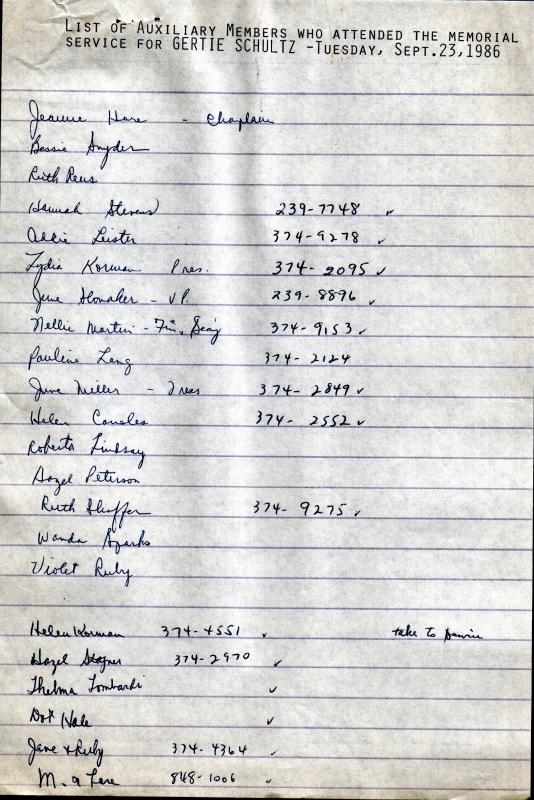 LIST OF AUXILIARY MEMBERS WHO ATTENDED THE MEMORIAL
SERVICE FOR GERTIE SCHULTZ -TUESDAY, SEPT.23,1986
Jeanne Hare - Chaplain
Bessie Snyder
Ruth Reus
Hannah Stevens 239-7748 ✓
Allie Leister 374-9278 ✓
Lydia Korman Pres. 374-2095 ✓
June Slonaker - V.P. 239-8896 ✓
Nellie Martin - Fin. Sec'y 374-9153 ✓
Pauline Lang 374-2124
June Miller - Treas 374-2849 ✓
Helen 374-2552 ✓
Roberta Lindsay
Hazel Peterson
Ruth Shaffer 374-9275 ✓
Wanda Sparks
Violet Ruby
Helen Korman 374-4551 ✓ take to
Hazel 374-2970 ✓
Thelma Lombardi ✓
Dot Hale ✓
Jane & Ruby 374-4364 ✓
M. 848-1006 ✓